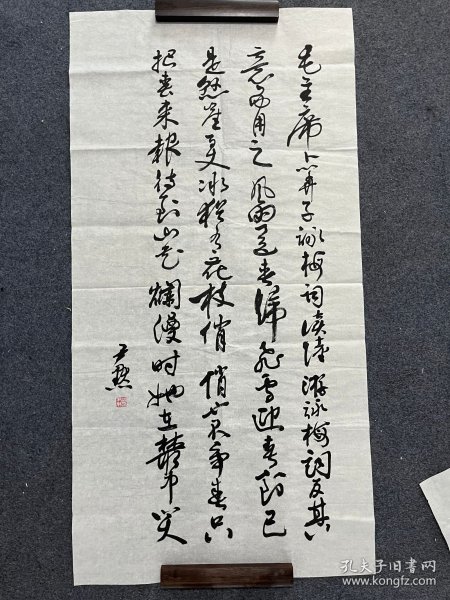 毛主席卜算子詠梅词读陆游詠梅詞反其
意而用之风雨送春歸飞雪迎春到已
是悬崖百丈冰犹有花枝俏俏也不争春只
把春来報待到山花爛漫时她在丛中笑
尹默
孔夫子旧书网
www.kongfz.com